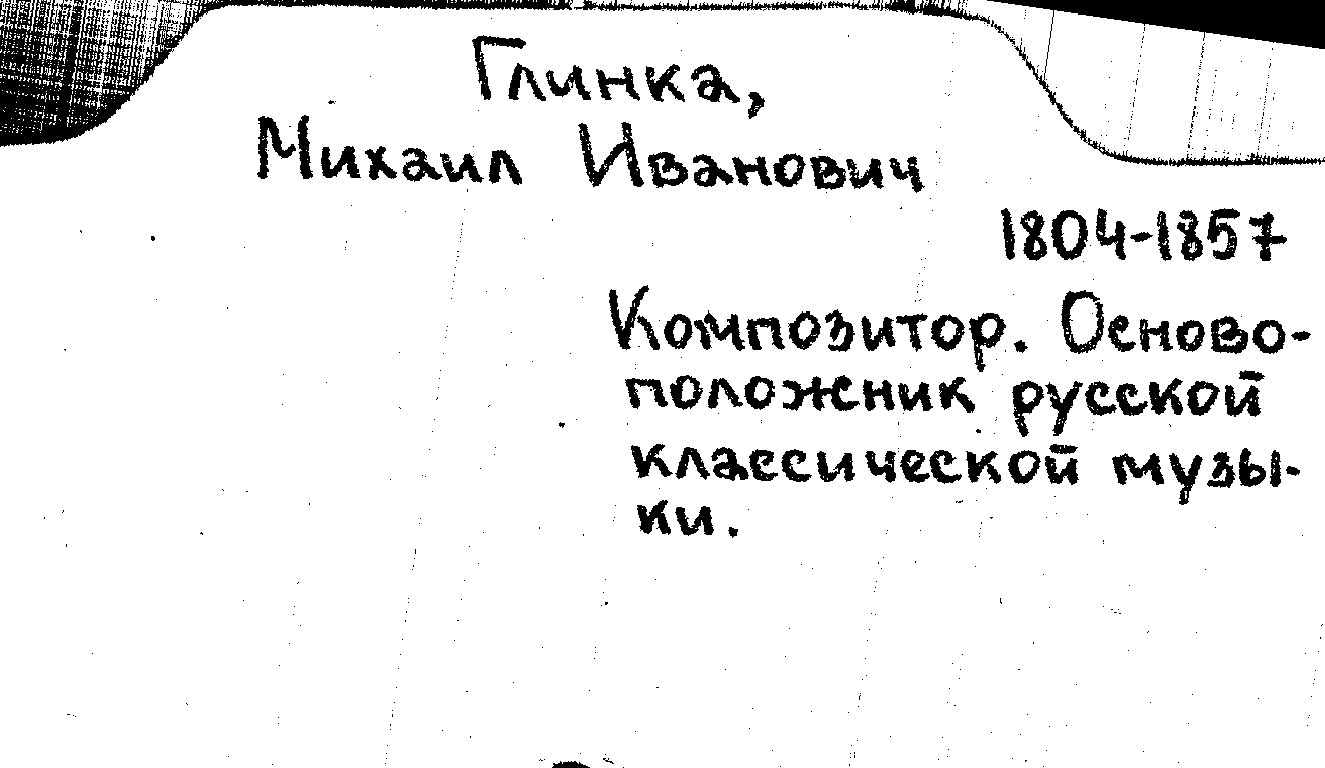 Глинка,
Михаил Иванович
1804-1857
Композитор. Осново-
положник русской
классической музы-
ки.